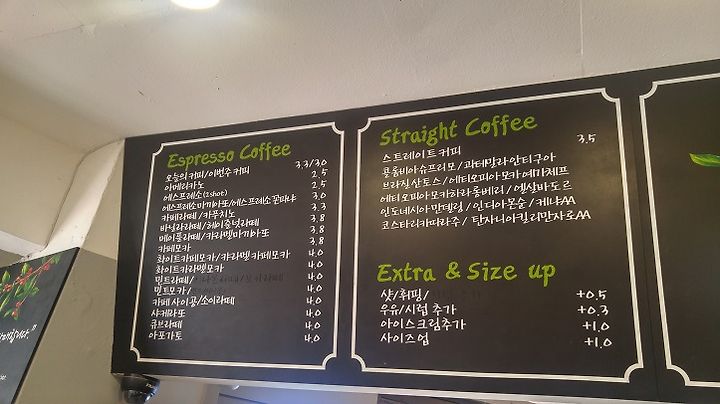 Espresso Coffee
오늘의커피/이번주커피 3.3/3.0
아메리카노 2.5
에스프레소(2shot) 2.5
에스프레소마끼아또/에스프레소꼰파냐 3.0
카페라떼/카푸치노 3.3
바닐라라떼/헤이즐넛라떼 3.8
메이플라떼/카라멜마끼아또 3.8
카페모카 3.8
화이트카페모카/카라멜카페모카 4.0
화이트카라멜모카 4.0
민트라떼/ 4.0
민트모카/ 4.0
카페사이공/소이라떼 4.0
샤케라또 4.0
큐브라떼 4.0
아포가토 4.0
Straight Coffee
스트레이트커피 3.5
콜롬비아슈프리모/과테말라안티구아
브라질산토스/에티오피아모카예가체프
에티오피아모카하라롱베리/엘살바도르
인도네시아만델링/인디아몬순/케냐AA
코스타리카따라주/탄자니아킬리만자로AA
Extra & Size up
샷/휘핑/ +0.5
우유/시럽 추가 +0.3
아이스크림추가 +1.0
사이즈업 +1.0